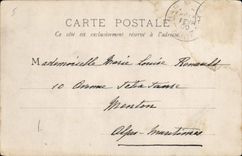 CARTE POSTALE
Ce côté est exclusivement réservé à l'adresse.
Mademoiselle Marie Louise Renault
10 Avenue
Menton
Alpes-Maritimes